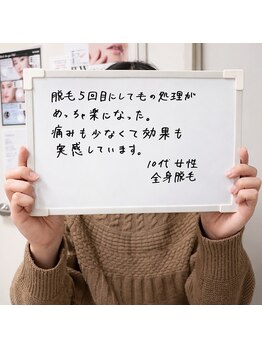 脱毛5回目にしてもの処理が
めっちゃ楽になった。
痛みも少なくて効果も
実感しています。
10代 女性
全身脱毛